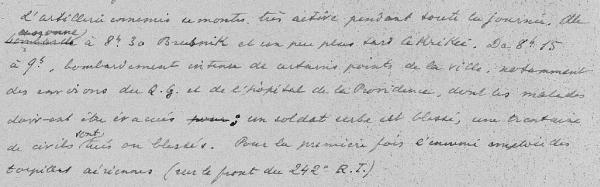 L'artillerie ennemie se montre très active pendant toute la journée. Elle
canonne
bombarde à 8h 30 Brusnik et un peu plus tard le Krklec. De 8h 15
à 9h, bombardement intense de certains points de la ville, notamment
des environs du Q.G. et de l'hôpital de la Providence, dont les malades
doivent être évacués pour; un soldat serbe est blessé, une trentaine
sont
de civils tués ou blessés. Pour la première fois l'ennemi emploie des
torpilles aériennes (sur le front du 242e R.I.)